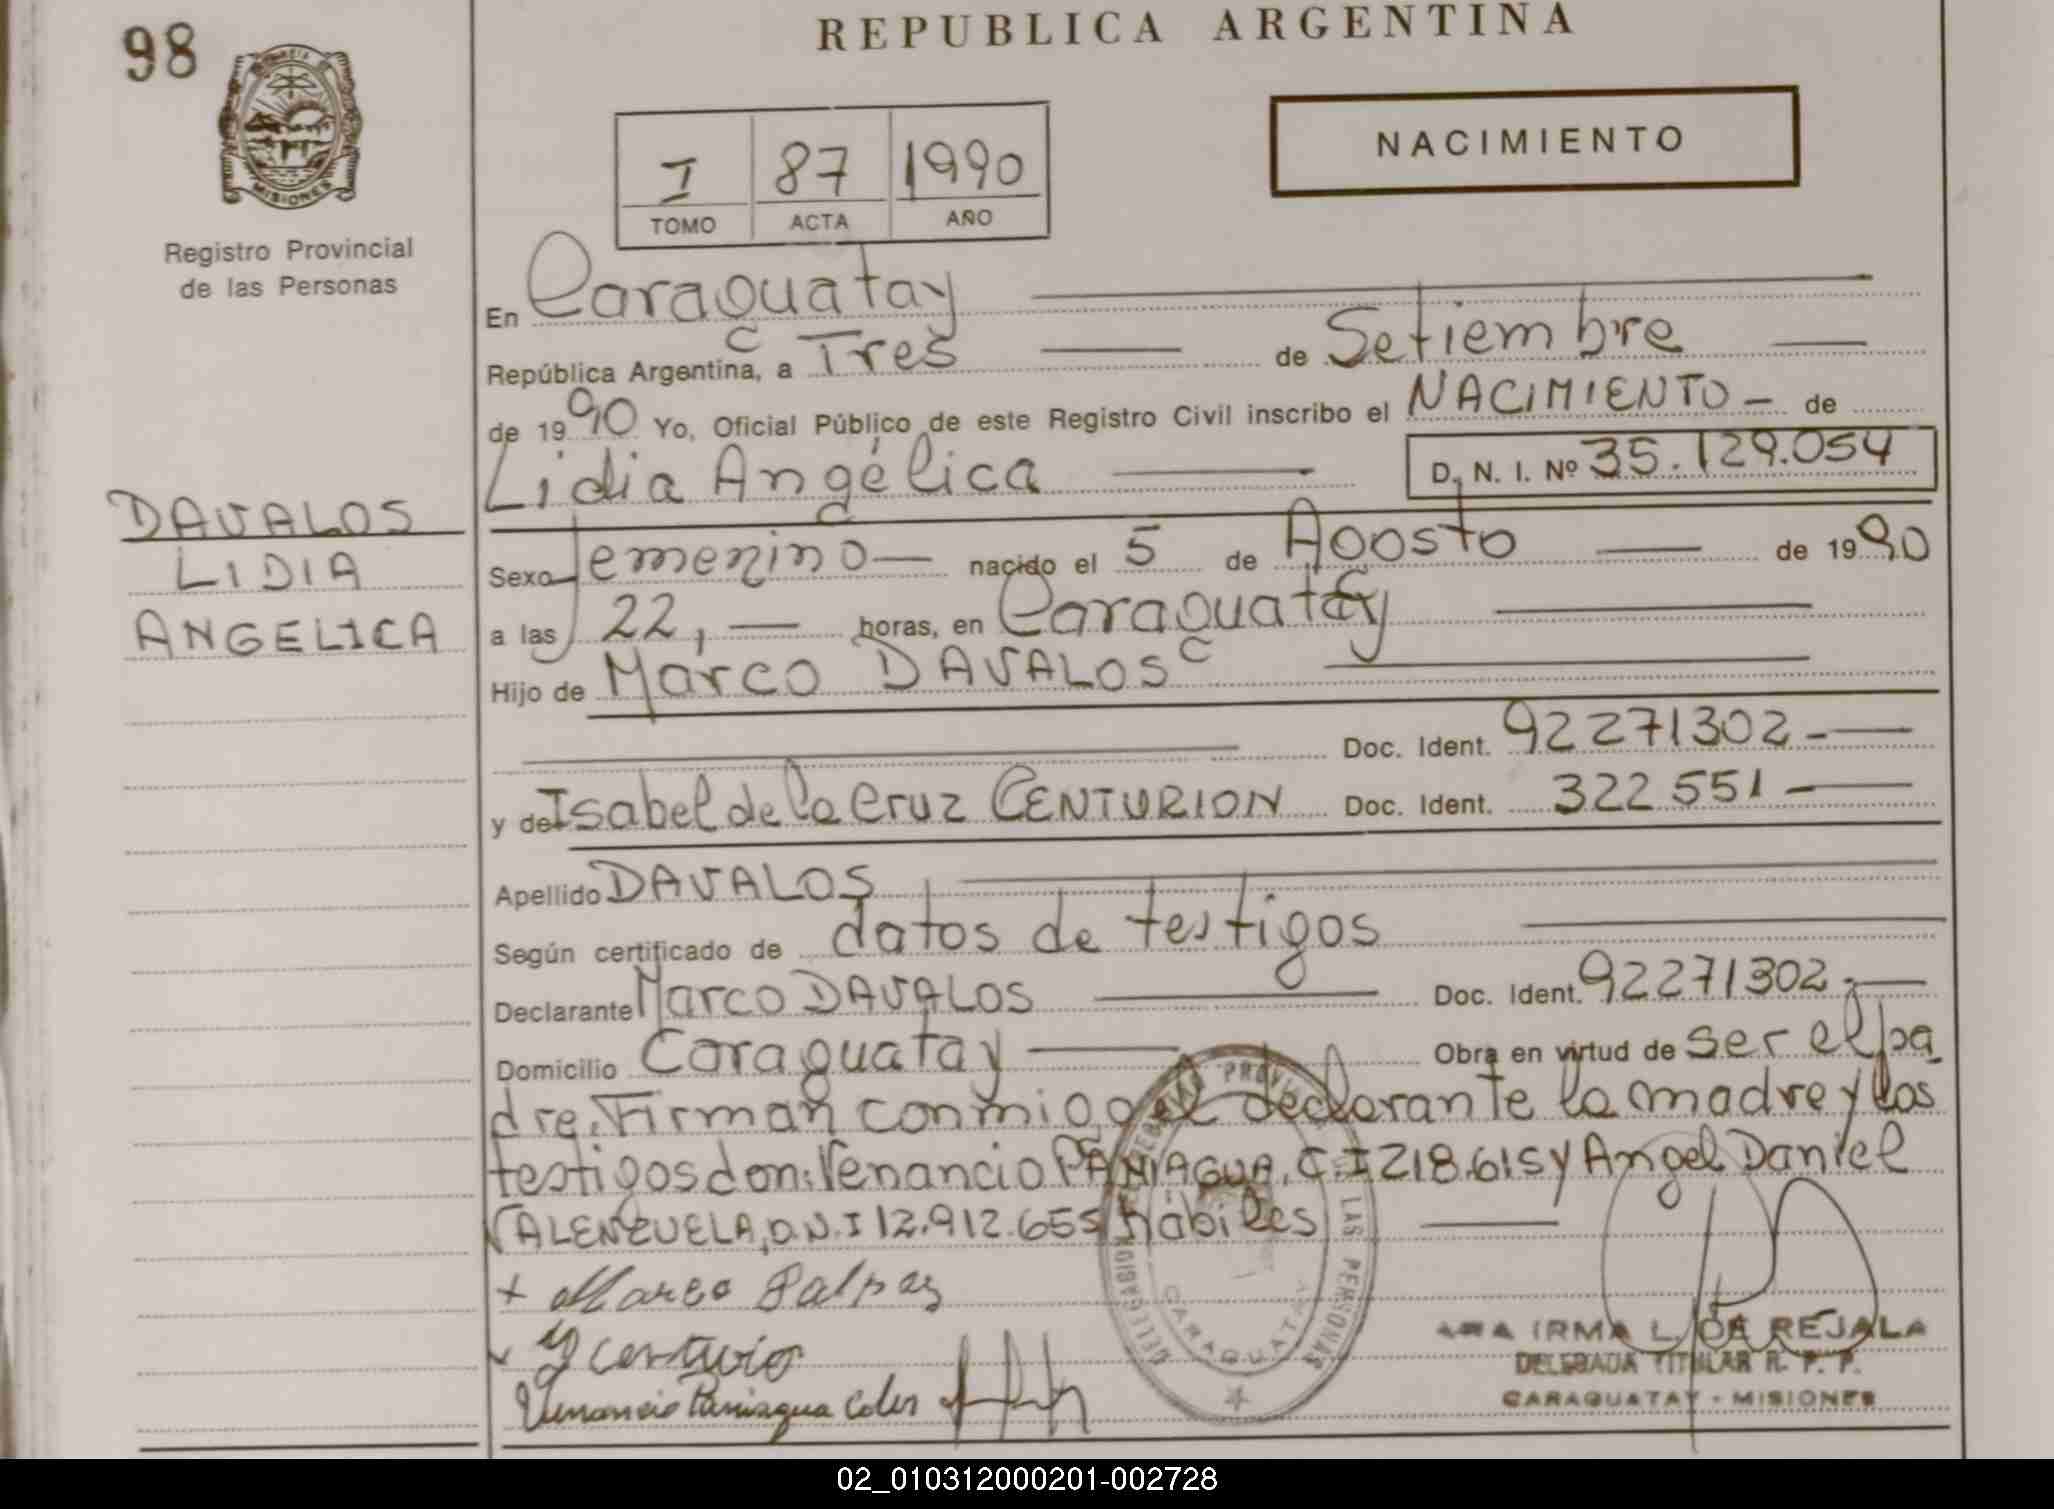 98
REPUBLICA ARGENTINA
MISIONES
Registro Provincial
de las Personas
I 87 1990
TOMO ACTA AÑO
NACIMIENTO
En Caraguatay
República Argentina, a Tres de Setiembre
de 1990 Yo, Oficial Público de este Registro Civil inscribo el NACIMIENTO - de
Lidia Angélica D. N. I. Nº 35.129.054
DAVALOS
LIDIA
ANGELICA
Sexo femenino nacido el 5 de Agosto de 1990
a las 22, horas, en Caraguatay
Hijo de Marco DAVALOS
Doc. Ident. 92271302
y de Isabel de la Cruz CENTURION Doc. Ident. 322551
Apellido DAVALOS
Según certificado de datos de testigos
Declarante Marco DAVALOS Doc. Ident. 92271302
Domicilio Caraguatay Obra en virtud de ser el pa
dre. Firman conmigo el declarante la madre y los
testigos don: Venancio PANIAGUA, C.I 218.615 y Angel Daniel
VALENZUELA, D.N.I 12.912.655 hábiles
+ Marco
Centurion
Venancio Paniagua
LAS PERSONAS
CARAGUATAY
IRMA L. DE REJALA
DELEGADA TITULAR R. P. P.
CARAGUATAY - MISIONES
02_010312000201-002728